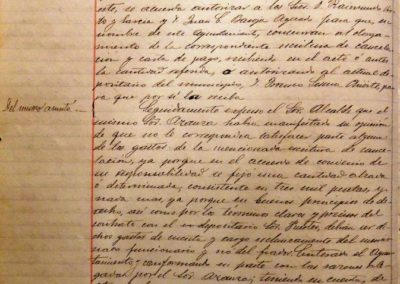 esto, se acuerda autorizar a los Sres. D. Raimundo
y Garcia y D. Juan L. para que, en
nombre de este Ayuntamiento, concurran al otorga-
miento de la correspondiente escritura de cancela-
cion y carta de pago, recibiendo en el acto ó antes
la cantidad referida, ó autorizando al actual de-
positario del municipio, D.
para que por sí la reciba
Del mismo asunto. Seguidamente expuso el Sr. Alcalde que el
mismo Sr. había manifestado su opinión
de que no le correspondía satisfacer parte alguna
de los gastos de la mencionada escritura de cance-
lación, ya porque en el acuerdo de convenio de
su responsabilidad se fijó una cantidad alzada
ó determinada, consistente en tres mil pesetas, y
nada mas, ya porque en buenos principios de de-
recho, asi como por los términos claros y precisos del
contrato con el ex depositario Sr. deben ser di-
chos gastos de cuenta y cargo exclusivamente del
funcionario y no del fiador. Enterado el Ayun-
tamiento y conformando en parte con las razones ale-
gadas por el Sr. teniendo en cuenta, de